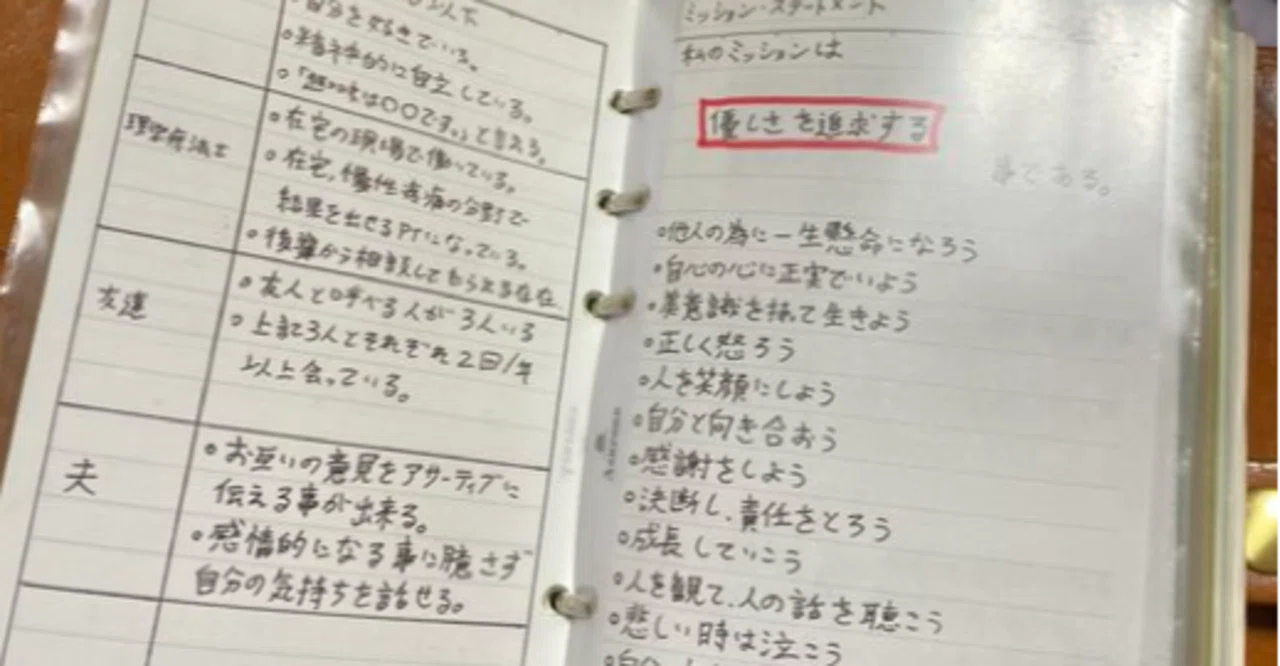 自分を好きでいる。
○精神的に自立している。
○「私は〇〇です。」と言える。
理学療法士
○在宅の現場で働いている。
○在宅、慢性疾患の分野で
結果を出せるPTになっている。
○後輩から相談してもらえる存在
友達
○友人と呼べる人が3人いる
○上記3人とそれぞれ2回/年
以上会っている。
夫
○お互いの意見をアサーティブに
伝える事が出来る。
○感情的になる事に臆さず
自分の気持ちを話せる。
ミッション・ステートメント
私のミッションは
優しさを追求する
事である。
○他人の為に一生懸命になろう
○自心の心に正実でいよう
○美意識を持って生きよう
○正しく怒ろう
○人を笑顔にしよう
○自分と向き合おう
○感謝をしよう
○決断し、責任をとろう
○成長していこう
○人を観て、人の話を聴こう
○悲しい時は泣こう